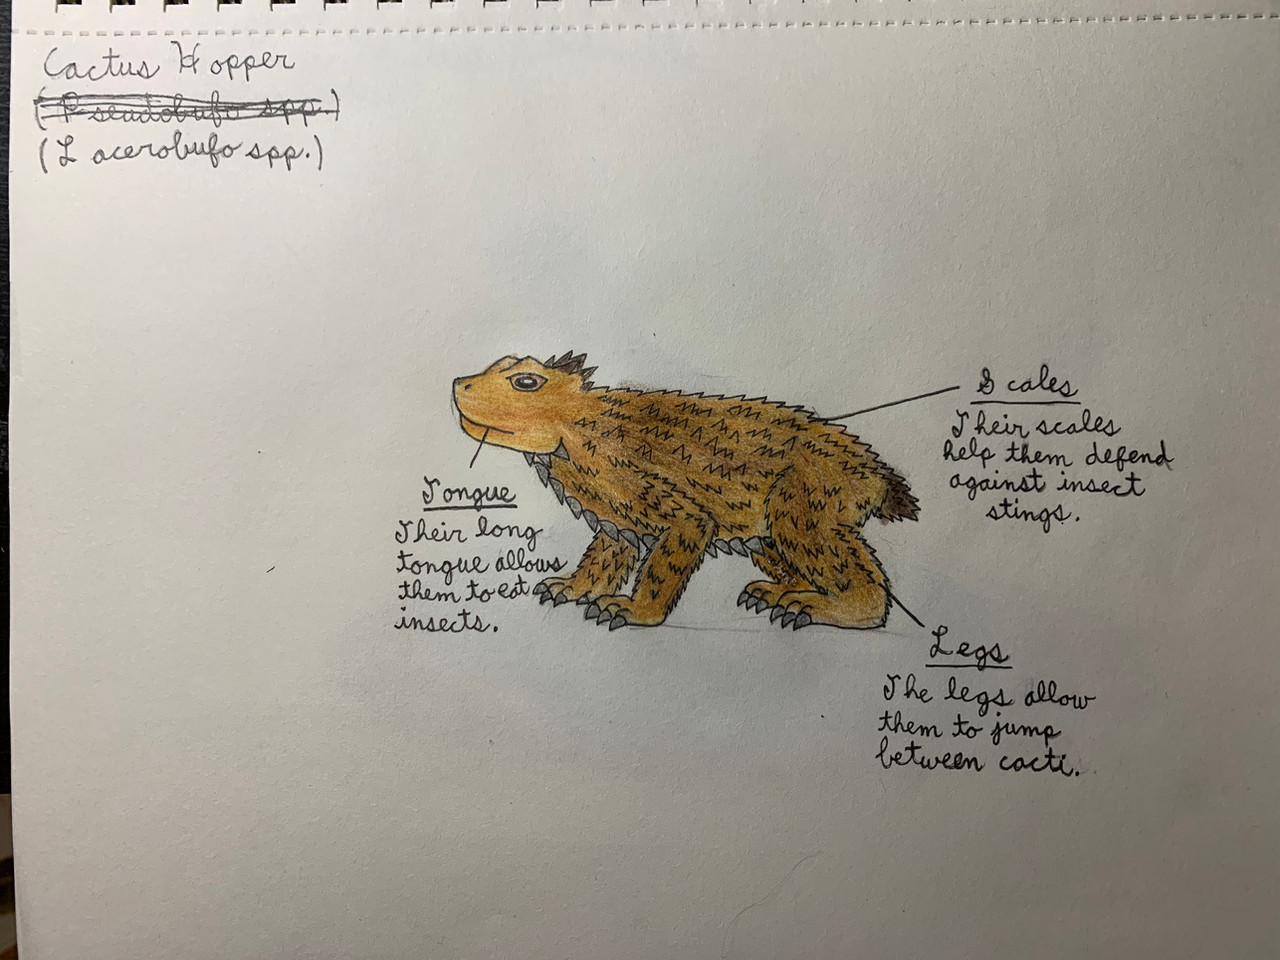 Cactus Hopper
(Pseudobufo spp.)
(Lacerobufo spp.)
Scales
Their scales
help them defend
against insect
stings.
Tongue
Their long
tongue allows
them to eat
insects.
Legs
The legs allow
them to jump
between cacti.